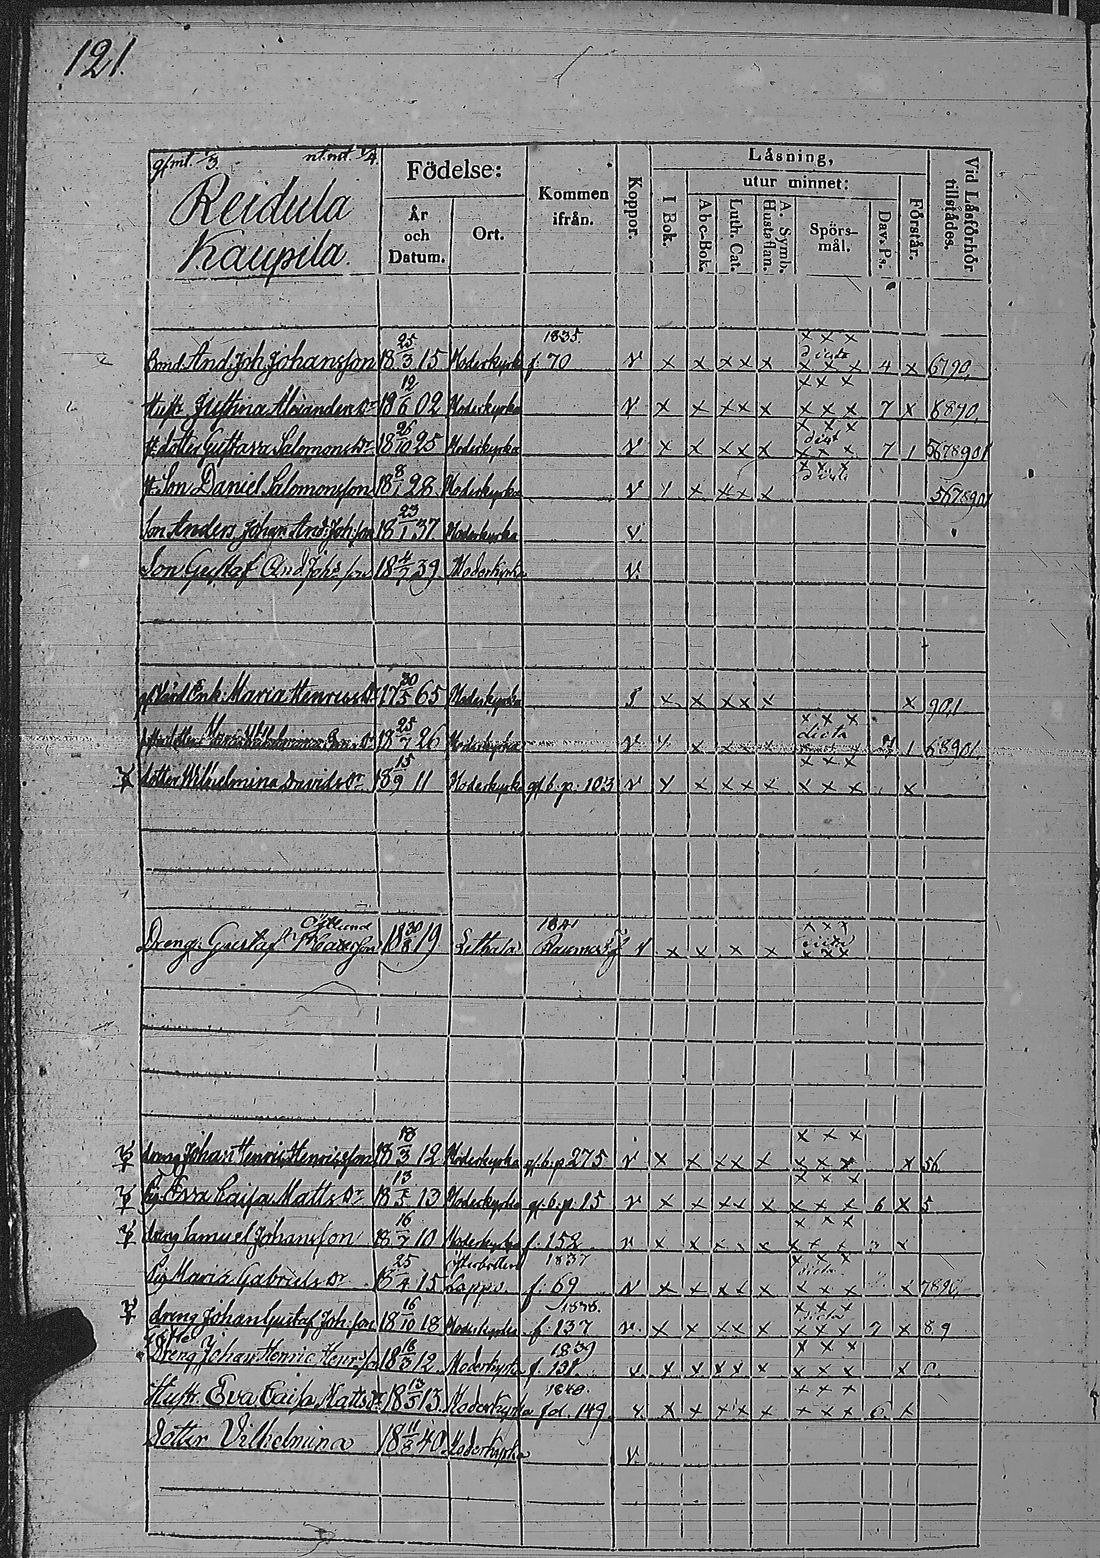 121.
gl mt. 1/3. nt. mt. 1/4
Reidula
Kaupila.
Födelse:
År och Datum.
Ort.
Kommen ifrån.
Koppor.
Läsning,
I Bok.
utur minnet:
Abc-Bok.
Luth. Cat.
A. Symb. Hustaflan.
Spörs-mål.
Dav. Ps.
Förstår.
Vid Läsförhör tillstädes.
Bond. And. Joh. Johansson 18 25/3 15 Moderkyrka 1835. f. 70 v x x xx x x x x dicta x x x 4 x 6790,
Hust. Justina Alexandersdr 18 12/6 02 Moderkyrka v x x xx x x x x x x x 7 x 6890,
H: dotter Gustava Salomonsdr 18 26/10 25 Moderkyrka v x x xx x x x x dict x x x 7 1 5678901
H: Son Daniel Salomonsson 18 8/1 28 Moderkyrka v x x xx x x x x 5678901
Son Anders Johan And: Joh. son 18 23/1 37 Moderkyrka v
Son Gustaf And Joh: son 18 4/7 39 Moderkyrka v.
Enk. Maria Henricsdr 17 20/5 65 Moderkyrka 5 x x xx x x 901
18 25/7 26 Moderkyrka v x x xx x x x x dicta 1 68901
dotter Wilhelmina Davidsdr 18 15/9 11 Moderkyrka gl. b. p. 103 v x x xx x x x x x x x x
Dreng. Gustaf Östlund 18 30/8 19 Letala 1841 Raumo v x x x x x x x dicta x x x
dreng Johan Henric Henricsson 18 18/3 12 Moderkyrka gl. b. p 275 v x x xx x x x x x x x x 56
Eva Caisa Mattsdr 18 13/5 13 Moderkyrka gl. b. p. 15 v x x xx x x x x x x x 6 x 5
dreng Samuel Johansson 18 16/7 10 Moderkyrka f. 152 v x x xx x x x x x x x x
Pig Maria Gabrielsdr 18 25/4 15 Österbotten Lappo. 1837 f. 69 v x x xx x x x x dicta x x x x 7890,
dreng Johan Gustaf Joh. son 18 16/10 18 Moderkyrka 1838. f. 137 v. x x xx x x x x dicta x x x 7 x 89
Dreng Johan Henric Henr:son 18 18/3 12 Moderkyrka 1839 f. 131. v x x xx x x x x x x x x
Hust. Eva Caisa Mattsdr 18 13/5 13 Moderkyrka 1840. fol. 149. v x x xx x x x x x x x 6. x
Dotter Vilhelmina 18 11/8 40 Moderkyrka v.